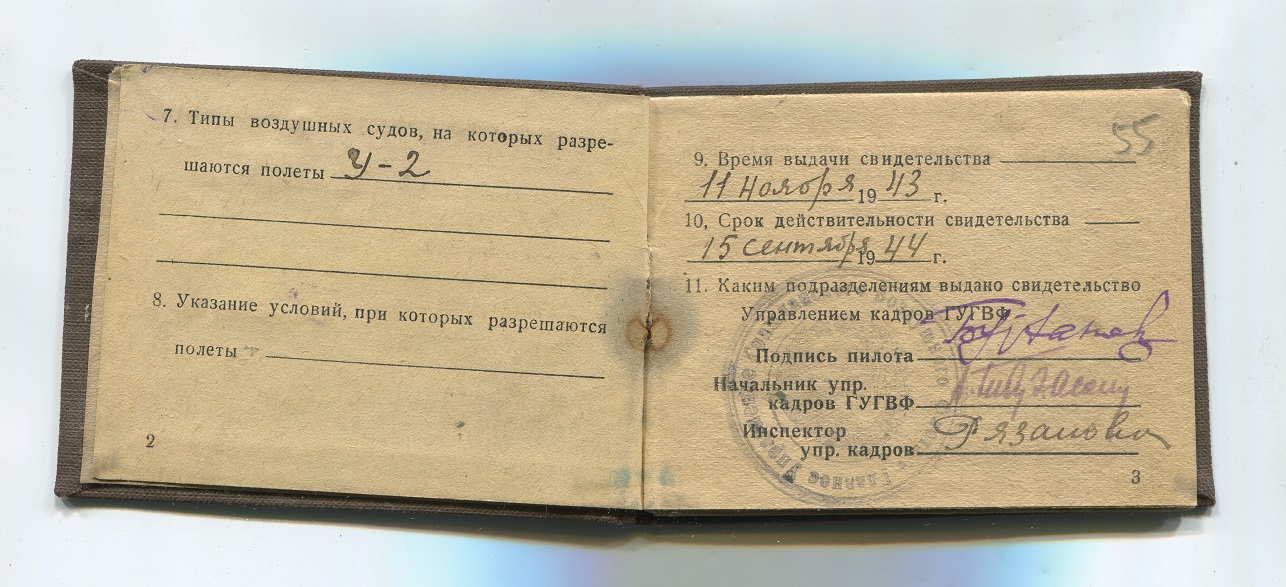 7. Типы воздушных судов, на которых разре-
шаются полеты У-2
8. Указание условий, при которых разрешаются
полеты
2
55
9, Время выдачи свидетельства
11 Ноября 1943 г.
10, Срок действительности свидетельства
15 сентября 1944 г.
11. Каким подразделениям выдано свидетельство
Управлением кадров ГУГВФ
Подпись пилота
Начальник упр.
кадров ГУГВФ
Инспектор
упр. кадров Рязанова
3
Главное Управление Гражданского Воздушного